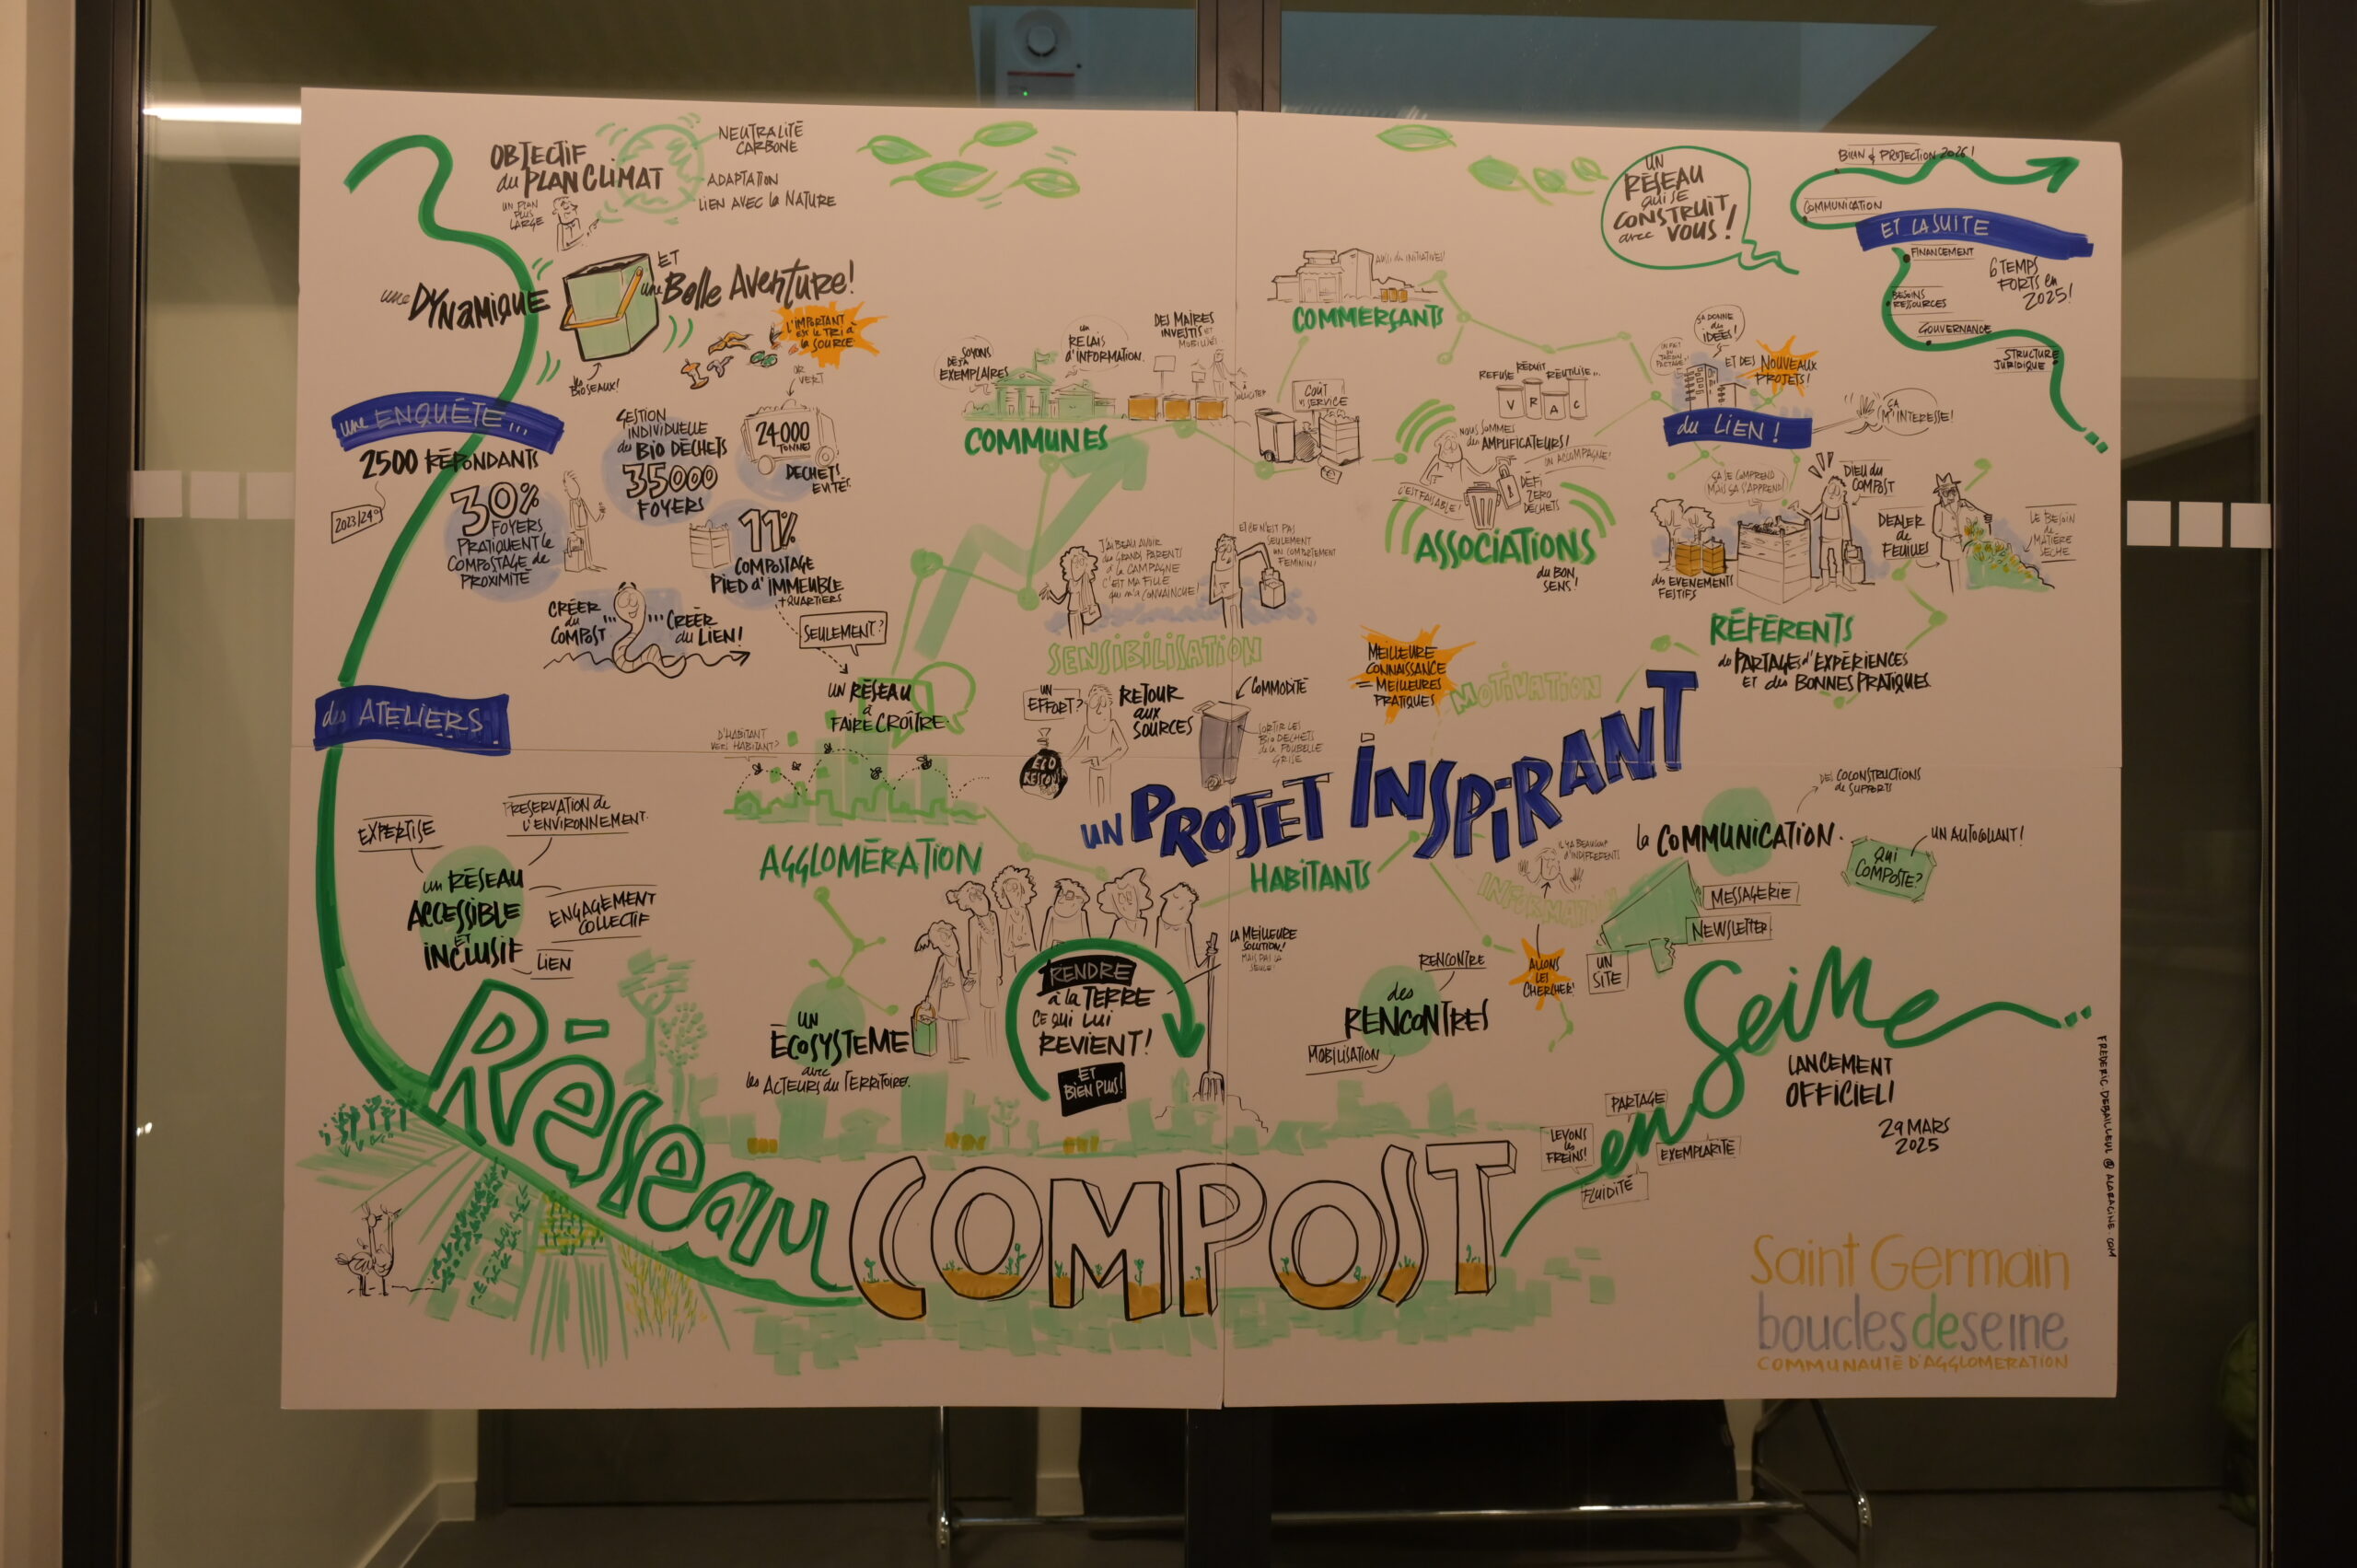 OBJECTIF
du PLAN CLIMAT
UN PLAN
PLUS
LARGE
NEUTRALITÉ
CARBONE
ADAPTATION
LIEN AVEC la NATURE
une DYNAMIQUE
ET
une Belle AVENTURE!
BIOSEAUX!
L'IMPORTANT
est le TRI à
la SOURCE
une ENQUÊTE...
2500 RÉPONDANTS
2023/24
30%
FOYERS
PRATIQUENT le
COMPOSTAGE de
PROXIMITÉ
GESTION
INDIVIDUELLE
des BIO DÉCHETS
35000
FOYERS
OR
VERT
24000
TONNES
DÉCHETS
ÉVITÉS
11%
COMPOSTAGE
PIED d'IMMEUBLE
+ QUARTIERS
SEULEMENT?
CRÉER
du
COMPOST...
...CRÉER
du LIEN!
UN RÉSEAU
à
FAIRE CROÎTRE
des ATELIERS
EXPERTISE
PRESERVATION de
L'ENVIRONNEMENT
un RÉSEAU
ACCESSIBLE
ET
INCLUSIF
ENGAGEMENT
COLLECTIF
LIEN
D'HABITANT
VERS HABITANT?
AGGLOMÉRATION
UN
ÉCOSYSTEME
avec
les ACTEURS du TERRITOIRE
SOYONS
DÉJÀ
EXEMPLAIRES
un
RELAIS
d'INFORMATION
DES MAIRES
INVESTIS et
MOBILISÉS
COMMUNES
COMMERÇANTS
COÛT
vs SERVICE
J'AI BEAU AVOIR
des GRANDS PARENTS
à la CAMPAGNE
C'EST MA FILLE
qui m'a CONVAINCUE!
ET CE N'EST PAS
SEULEMENT
UN COMPORTEMENT
FEMININ!
SENSIBILISATION
UN
EFFORT?
RETOUR
aux
SOURCES
ECO
COMMODITÉ
SORTIR LES
BIO DÉCHETS
de la POUBELLE
GRISE
MEILLEURE
CONNAISSANCE
= MEILLEURES
PRATIQUES
MOTIVATION
UN PROJET INSPIRANT
HABITANTS
RENDRE
à la TERRE
CE QUI LUI
REVIENT!
ET
BIEN PLUS!
LA MEILLEURE
SOLUTION!
MAIS PAS LA
SEULE!
REFUSE RÉDUIT RÉUTILISE...
V R A C
NOUS SOMMES
des AMPLIFICATEURS!
ON ACCOMPAGNE!
C'EST FAISABLE!
DÉFI
ZERO
DÉCHETS
ASSOCIATIONS
du BON
SENS!
UN
RÉSEAU
QUI SE
CONSTRUIT
avec VOUS!
BILAN & PROJECTION 2026!
COMMUNICATION
ET LA SUITE
FINANCEMENT
6 TEMPS
FORTS en
2025!
BESOINS
RESSOURCES
GOUVERNANCE
STRUCTURE
JURIDIQUE
ÇA DONNE
des
IDÉES!
ET DES NOUVEAUX
PROJETS!
du LIEN!
ÇA
M'INTERESSE!
ÇA SE COMPREND
MAIS ÇA S'APPREND!
DIEU du
COMPOST
des EVENEMENTS
FESTIFS
DEALER
de
FEUILLES
LE BESOIN
de
MATIÈRE
SÈCHE
RÉFÉRENTS
des PARTAGES d'EXPÉRIENCES
ET des BONNES PRATIQUES
IL Y A BEAUCOUP
d'INDIFFÉRENTS
INFORMATION
ALLONS
LES
CHERCHER!
RENCONTRE
des
RENCONTRES
MOBILISATION
DES COCONSTRUCTIONS
de SUPPORTS
la COMMUNICATION
UN AUTOCOLLANT!
QUI
COMPOSTE?
MESSAGERIE
NEWSLETTER
UN
SITE
Réseau
COMPOST
en Seine
LEVONS
les
FREINS!
PARTAGE
EXEMPLARITÉ
FLUIDITÉ
LANCEMENT
OFFICIEL!
29 MARS
2025
FREDERIC.DEBAILLEUL@ALARACINE.COM
Saint Germain
bouclesdeseine
COMMUNAUTÉ D'AGGLOMERATION